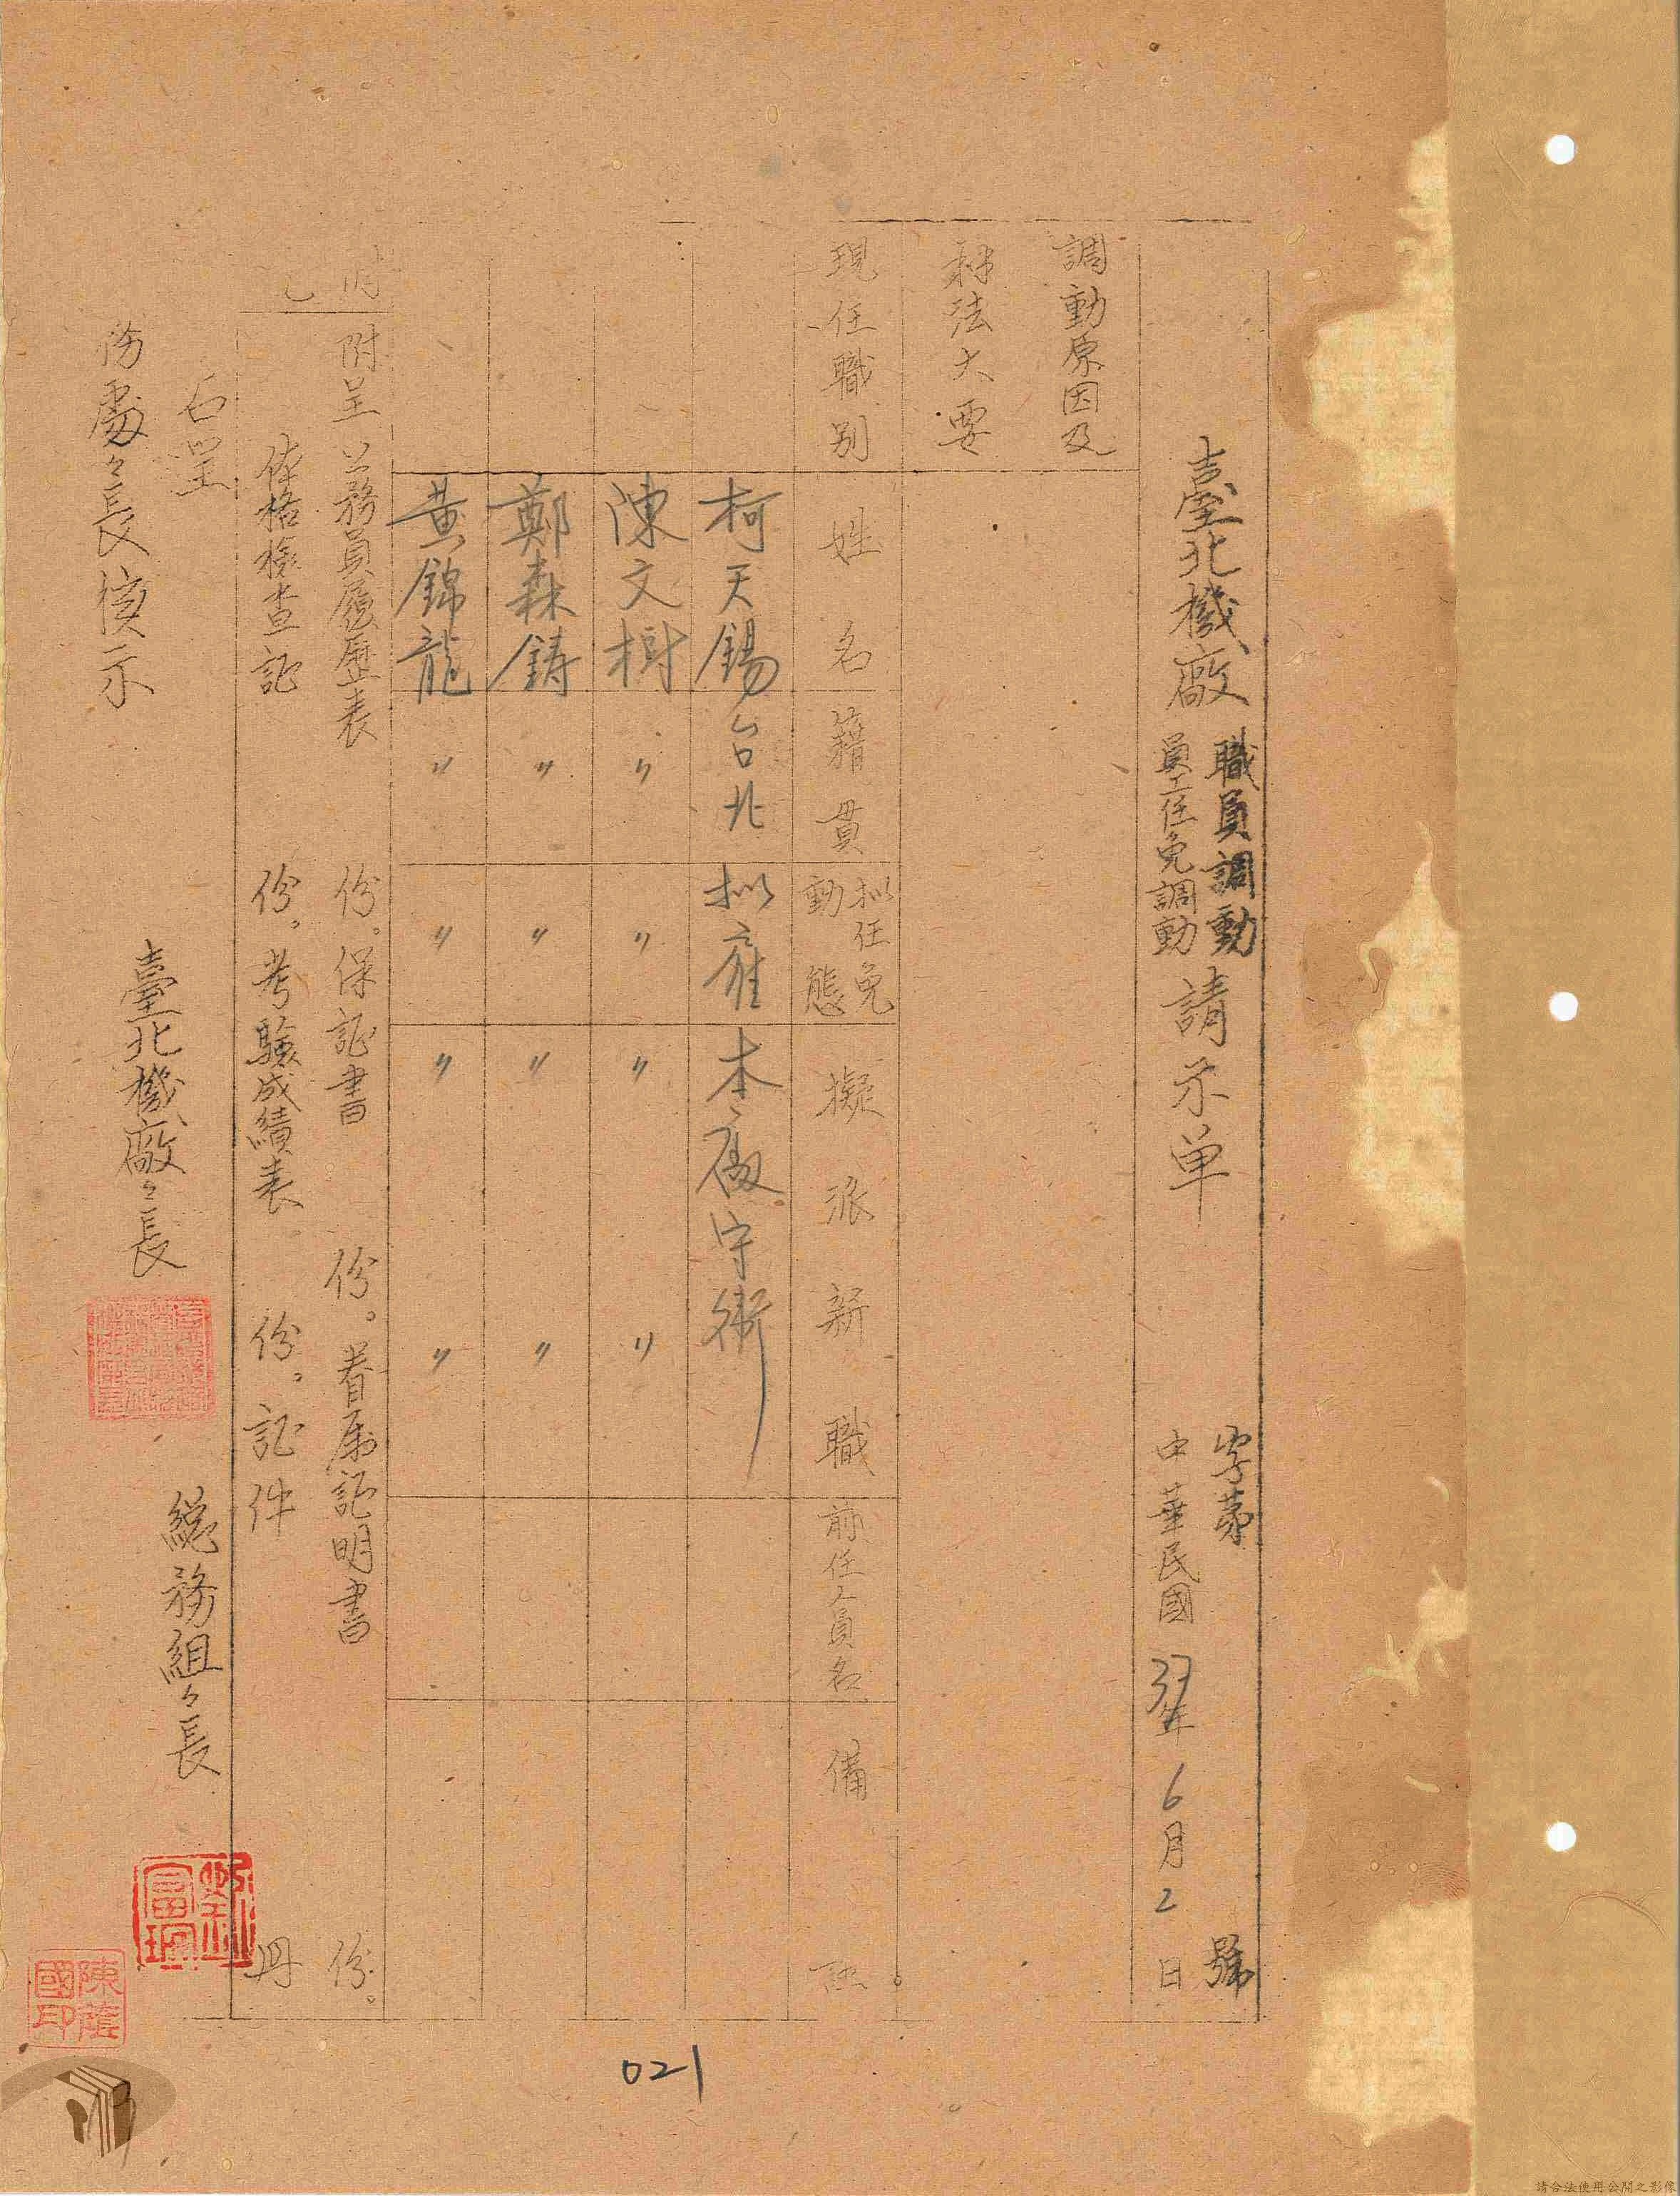 臺北機廠
職員調動
員工任免調動
請示単
字第 號
中華民國37年6月2日
調動原因及
辦法大要
現任職別 姓名 籍貫 拟任免動態 擬派新職 前任人員名 備註
柯天錫 台北 拟雇 本廠守衛
陳文樹 〃 〃 〃 〃
鄭森鑄 〃 〃 〃 〃
黃錦龍 〃 〃 〃 〃
附呈 公務員履歷表 份。保証書 份。眷屬証明書 份。
体格檢查証 份。考驗成績表 份。証件 冊
右呈
處々長核示
臺北機廠々長
總務組々長
陳蔭國印
021
請合法使用公開之影像